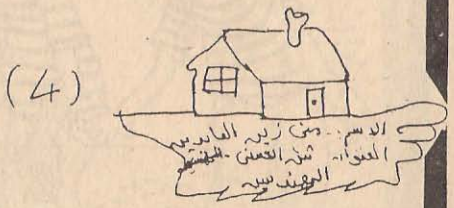 (4)
الاسم .. منى زين العابدين
العنوان
المهندسين